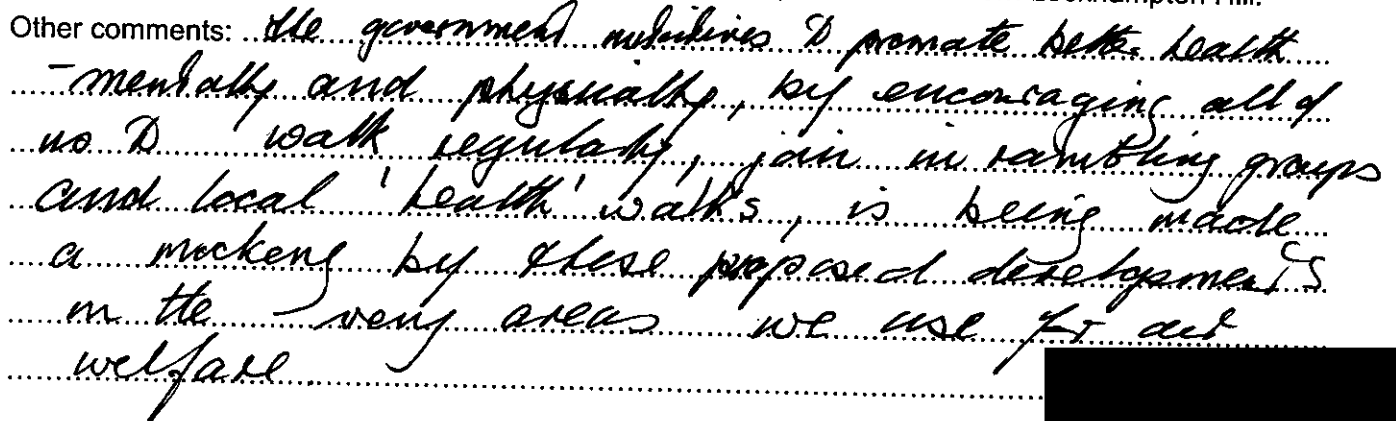 Leckhampton Hill.
Other comments: the government initiatives to promote better health
- mentally and physically, by encouraging all of
us to walk regularly, join in rambling groups
and local 'health' walks, is being made
a mockery by these proposed developments
in the very areas we use for our
welfare.